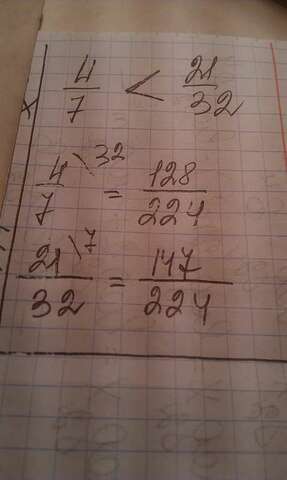 4/7 < 21/32
4/7 \32 = 128/224
21/32 \7 = 147/224